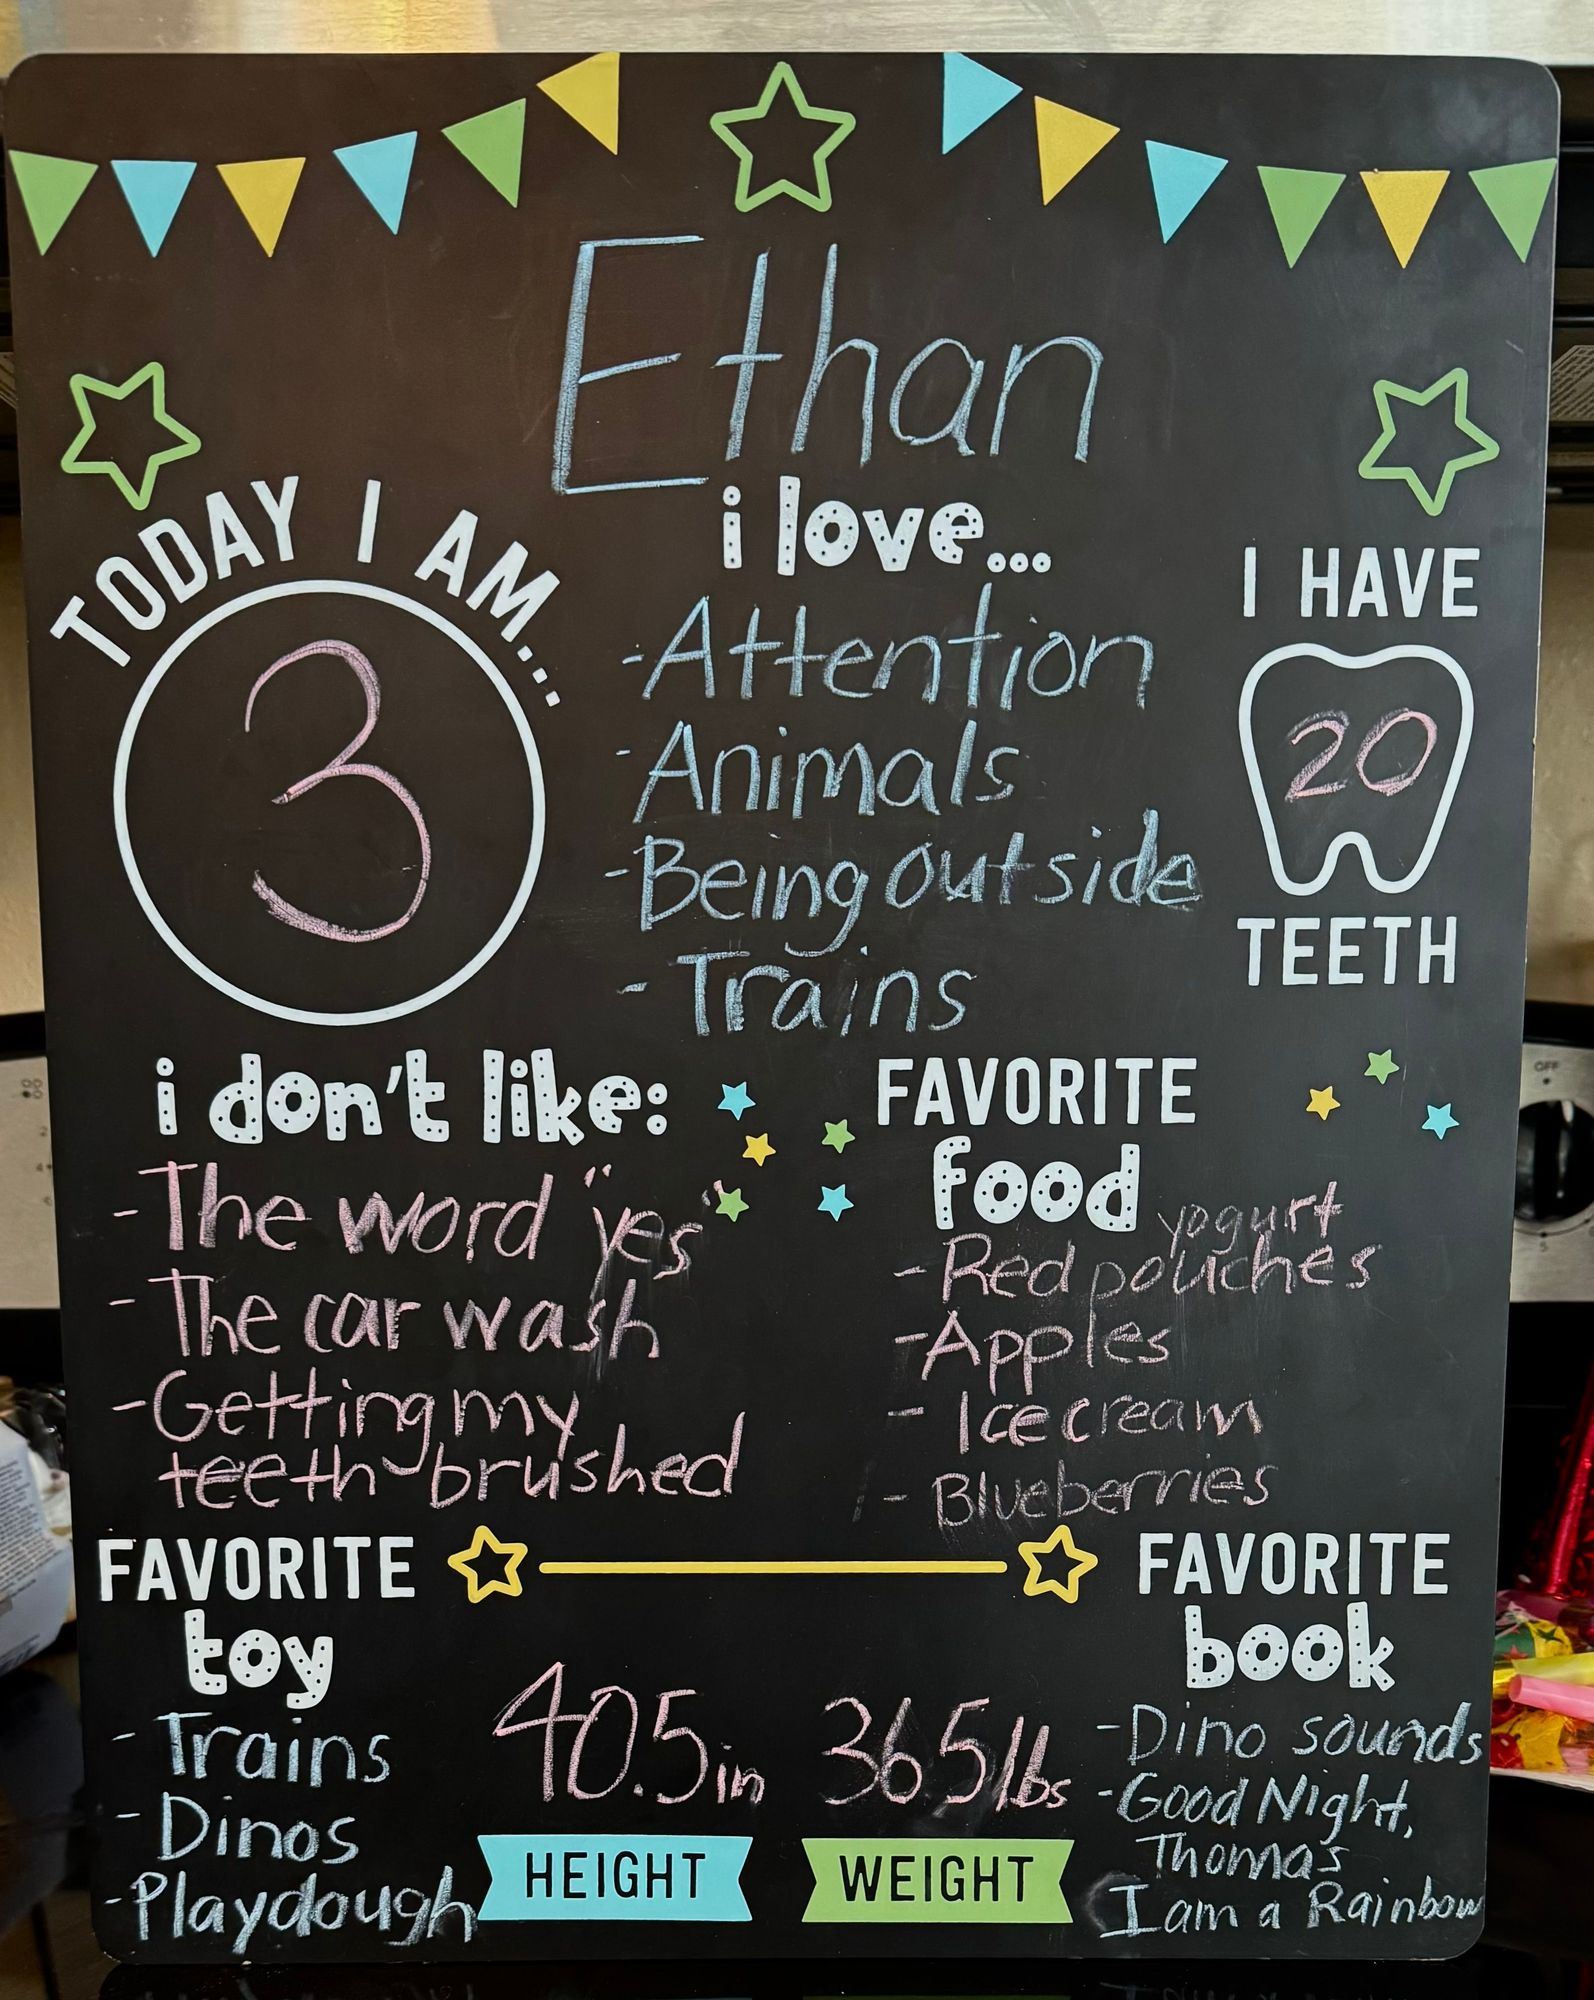 Ethan
TODAY I AM...
3
i love...
-Attention
-Animals
-Being outside
-Trains
I HAVE
20
TEETH
i don't like:
-The word "yes"
-The car wash
-Getting my
teeth brushed
FAVORITE
food
yogurt
-Red pouches
-Apples
-Ice cream
-Blueberries
FAVORITE
toy
-Trains
-Dinos
-Playdough
40.5in
HEIGHT
36.5lbs
WEIGHT
FAVORITE
book
-Dino sounds
-Good Night,
Thomas
I am a Rainbow